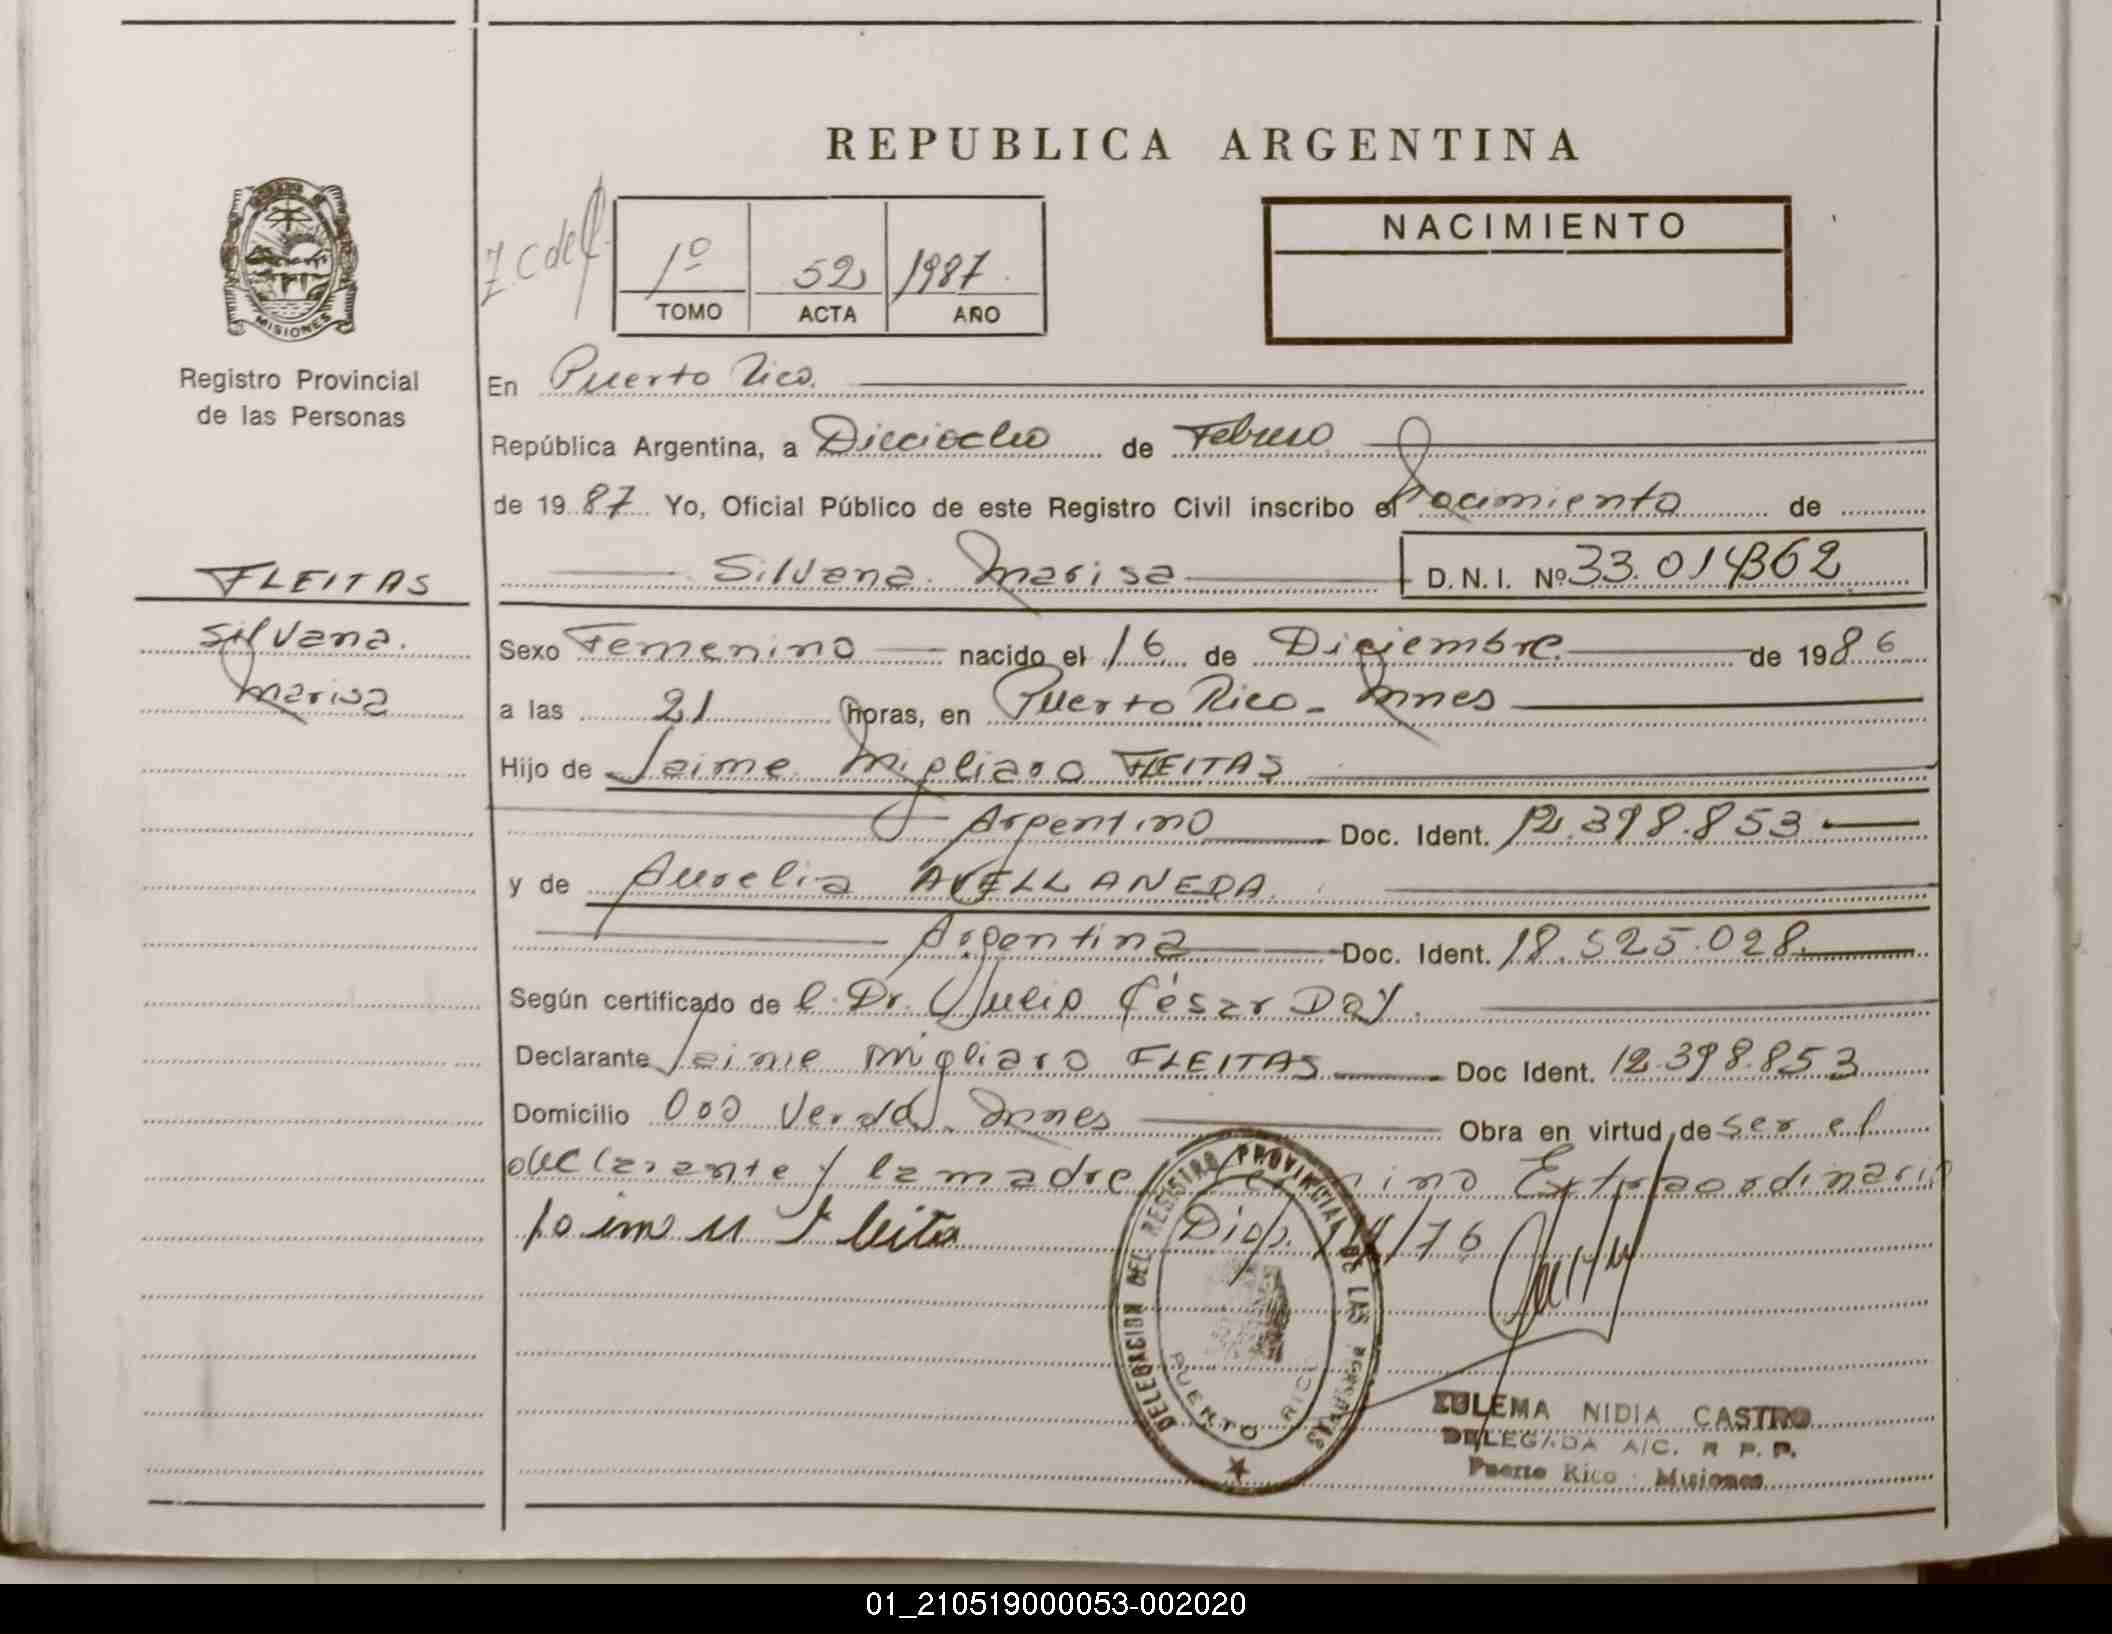 REPUBLICA ARGENTINA
MISIONES
Registro Provincial
de las Personas
1º 52 1987
TOMO ACTA AÑO
NACIMIENTO
En Puerto Rico.
República Argentina, a Dieciocho de Febrero
de 1987 Yo, Oficial Público de este Registro Civil inscribo el Nacimiento de
Silvana Marisa D.N.I. Nº 33.014362
FLEITAS
Silvana
Marisa
Sexo Femenino nacido el 16 de Diciembre de 1986
a las 21 horas, en Puerto Rico - Mnes
Hijo de Jaime Migliaro FLEITAS
Argentino Doc. Ident. 12.398.853
y de Aurelia AVELLANEDA
Argentina Doc. Ident. 18.525.028
Según certificado de l. Dr. Julio César Day.
Declarante Jaime Migliaro FLEITAS Doc Ident. 12.398.853
Domicilio Mnes Obra en virtud de ser el
declarante y la madre Termino Extraordinario
Disp. /76
DELEGACION DEL REGISTRO PROVINCIAL DE LAS PERSONAS
PUERTO RICO
ZULEMA NIDIA CASTRO
DELEGADA A/C. R P. P.
Puerto Rico - Misiones
01_210519000053-002020